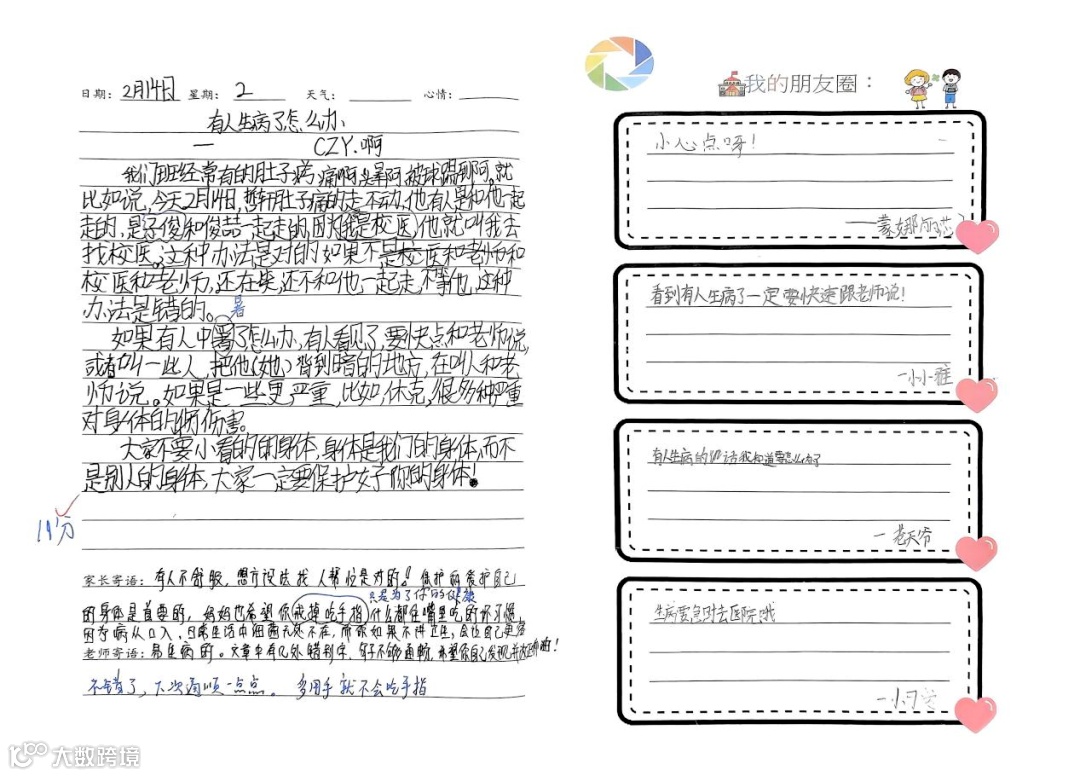 日期：2月14日 星期：2 天气： 心情：
有人生病了怎么办
— CZY.啊
我们班经常有的肚子疼 痛啊头晕阿 被球踢到阿。就
比如说，今天2月14日，哲轩肚子痛的走不动，他有人是和他一起
走的，是子俊和俊喆一起走的，因为我是校医，他就叫我去
找校医。这种办法是对的如果不是校医和老师和
校医和老师，还在笑，还不和他一起走，不等他，这种
办法是错的。 暑
如果有人中署了怎么办，有人看见了，要快点和老师说，
或者叫一些人，把他（她）背到暗的地方，在叫人和老
师说。如果是一些更严重，比如，休克，很多种严重
对身体的伤害。
大家不要小看的的身体，身体是我们的身体，而不
是别人的身体，大家一定要保护好你的身体！
19分
家长寄语：有人不舒服，想方设法找人帮忙是对的！保护和爱护自己
只是为了你的健康
的身体是首要的，妈妈也希望你戒掉吃手指什么都往嘴里吃的坏习惯，
因为病从口入，日常生活中细菌无处不在，而你如果不讲卫生，会让自己更容
老师寄语：易生病的。文章中有几处错别字，句子不够通顺，希望你自己发现并改正哦！
不错了，下次通顺一点点。 多用手就不会吃手指
我的朋友圈：
小心点呀！
看到有人生病了一定要快速跟老师说！
—小小雅
有人生病的的话我知道要怎么办了
—老天爷
生病要急时去医院哦
—小
大数跨境